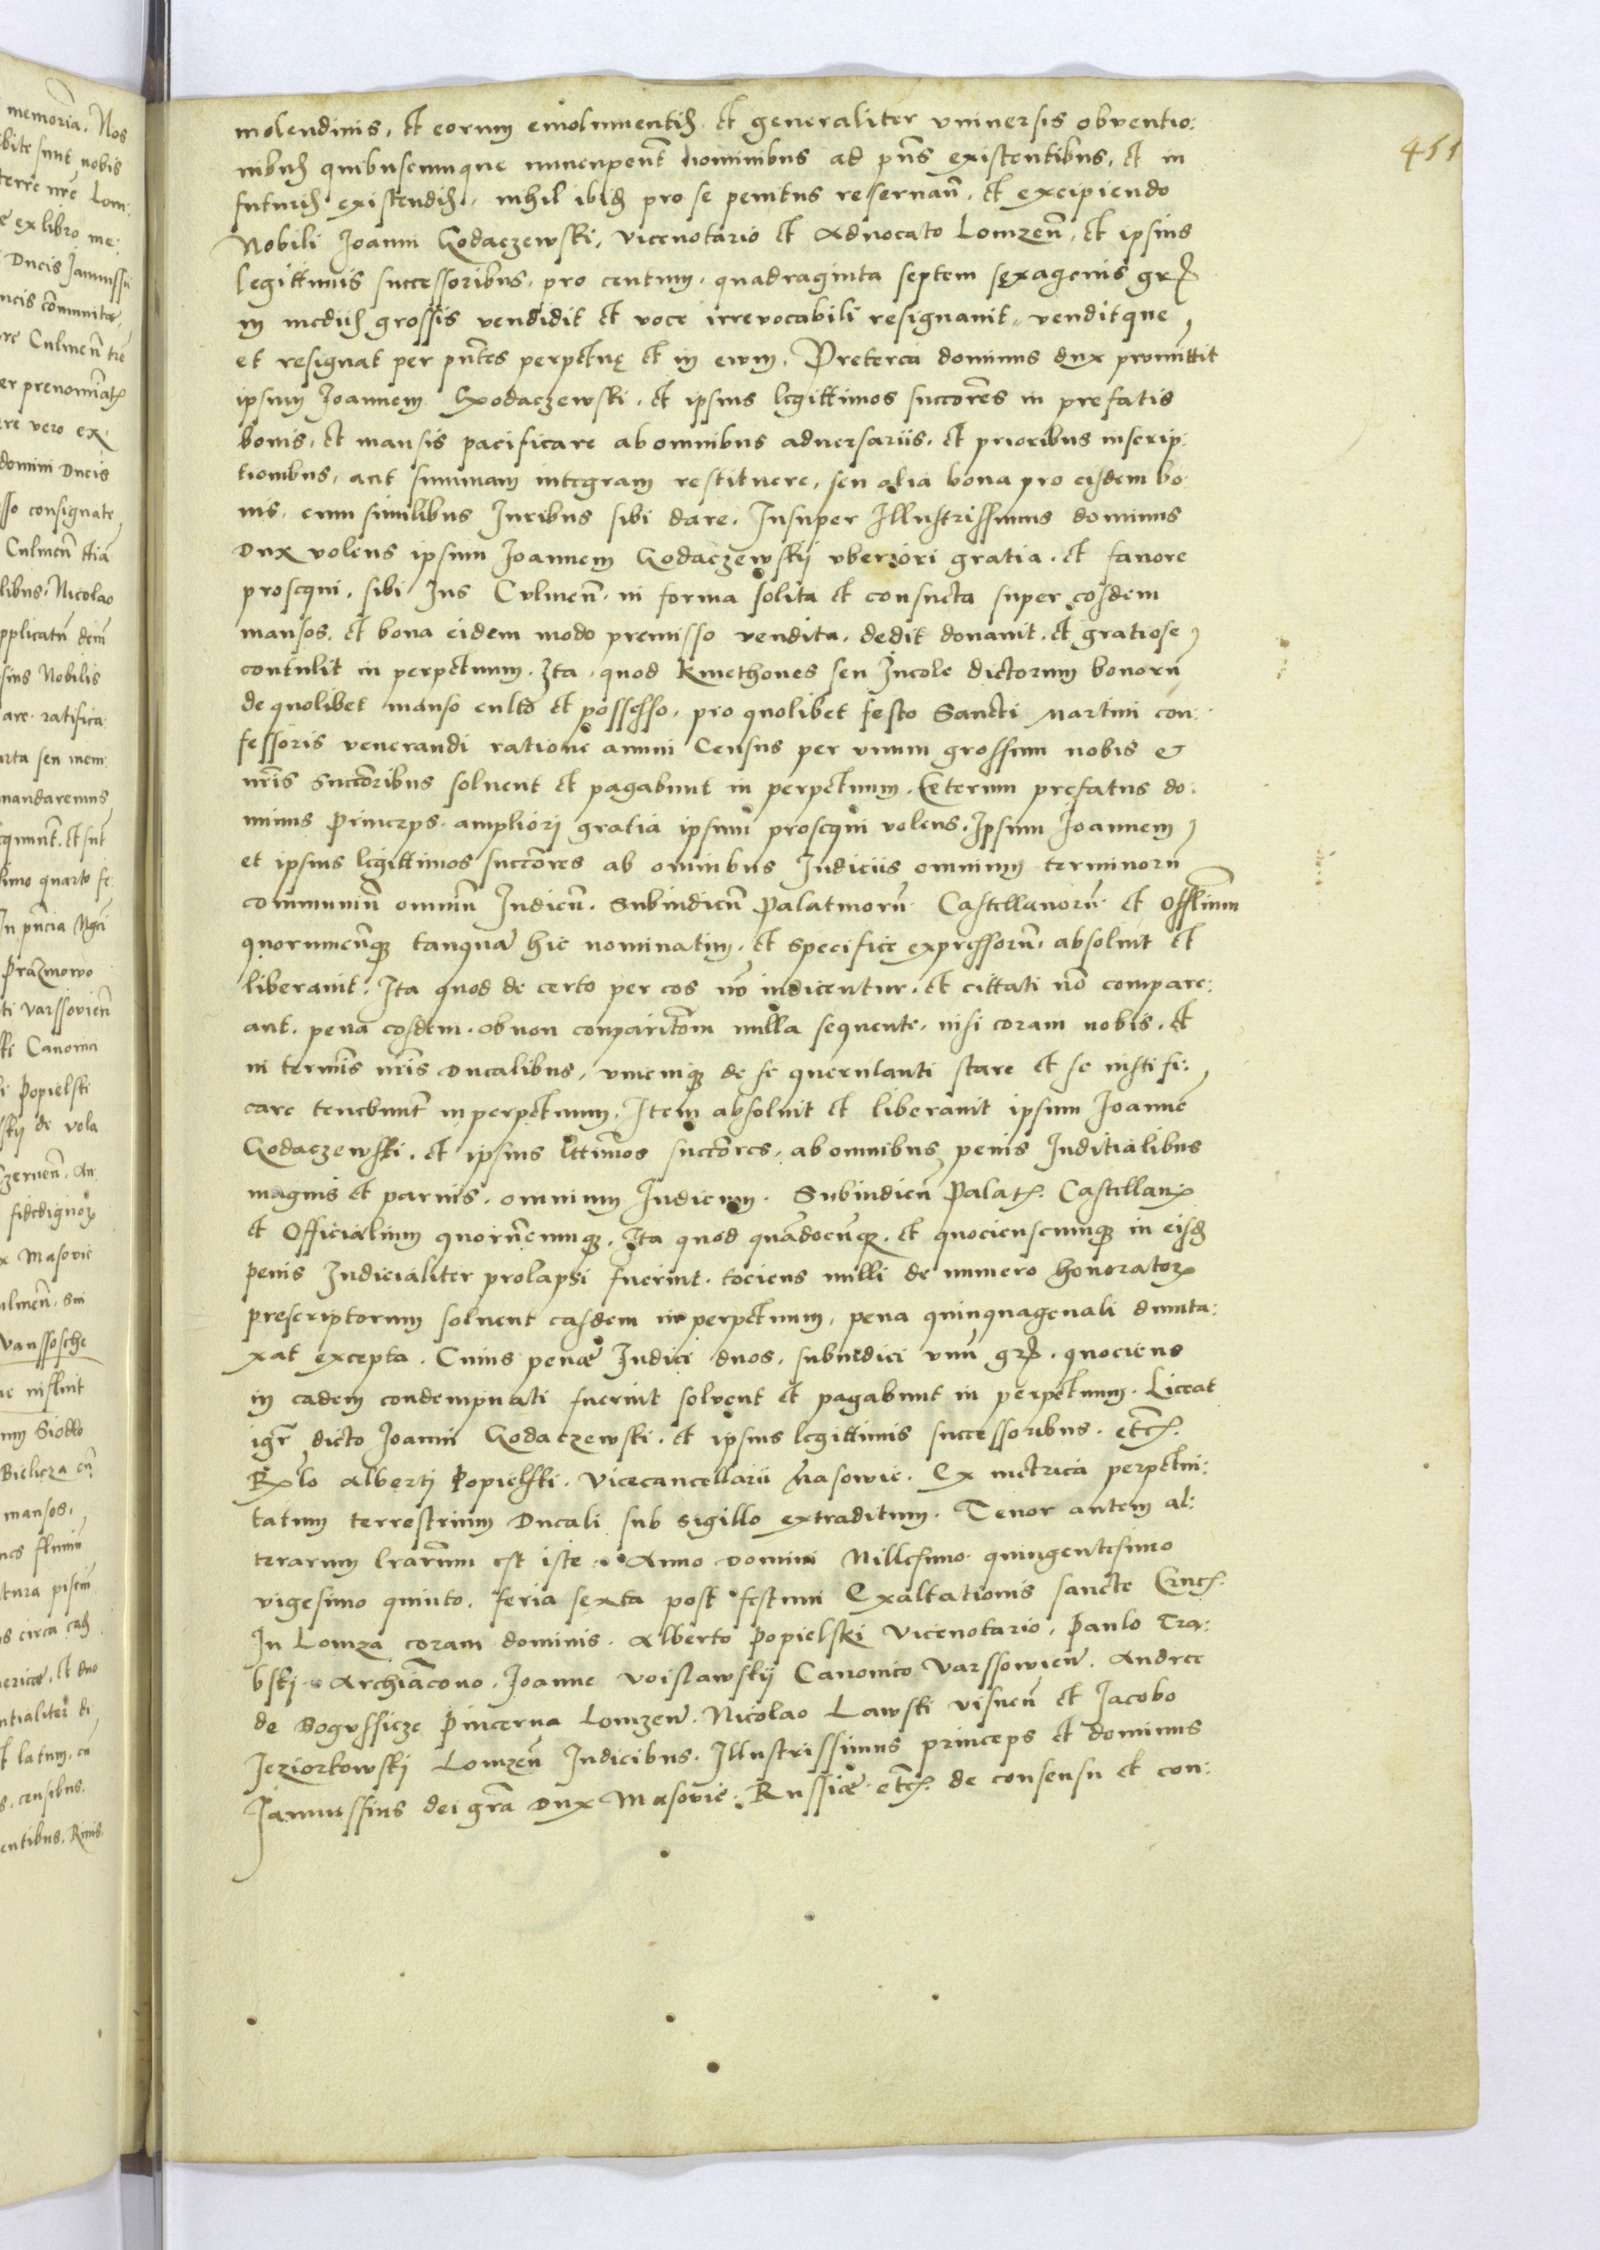 451
molendinis, et eorum emolumentis et generaliter vniuersis obventio:
nibus quibuscumque nuncupent nominibus ad pñs existentibus, et in
futuris existendis, nihil ibid pro se penitus reseruañ, et excipiendo
Nobili Joanni Godaczewski, vicenotario et Aduocato Lomzeñ, et ipsius
legittimis successoribus, pro centum, quadraginta septem sexagenis gr
in mediis grossis vendidit et voce irrevocabili resignauit, venditque
et resignat per pñtes perpetuę et in ewm. Preterea dominus dux promittit
ipsum Joannem Godaczewski, et ipsius legittimos succores in prefatis
bonis, et mansis pacificare ab omnibus aduersariis, et prioribus inscrip:
tionibus, aut summam integram restituere, seu alia bona pro eisdem bo
nis, cum similibus Juribus sibi dare. Insuper Illustrissimus dominus
Dux volens ipsum Joannem Godaczewskij vberiori gratia, et fauore
prosequi, sibi Jus Culmeñ, in forma solita et consueta super eosdem
mansos, et bona eidem modo premisso vendita, dedit donauit, et gratiose
contulit in perpetuum. Ita, quod kmethones seu Incole dictorum bonorũ
de quolibet manso culto et possesso, pro quolibet festo Sancti Martini con:
fessoris venerandi ratione annui Census per vnum grossum nobis et
nr̃is Succoribus soluent et pagabunt in perpetuum. Ceterum prefatus do:
minus princeps ampliori gratia ipsum prosequi volens. Ipsum Joannem
et ipsius legittimos succores ab omnibus Judiciis omnium terminorũ
communiũ omniũ Judicũ. Subiudicũ Palatinorũ Castellanorũ et Offliũm
quorumcunq tanquã hic nominatim, et specifice expressorũ, absoluit et
liberauit. Ita quod de certo per eos nõ iudicentur, et cittati nõ compare:
ant, pena eosdem, ob non comparitõm nulla sequente, nisi coram nobis, et
in termĩs nr̃is Ducalibus, vnicuiq de se querulanti stare et se iustifi:
care tenebuntr in perpetuum. Item absoluit et liberauit ipsum Joannẽ
Godaczewski, et ipsius lttimos succores, ab omnibus penis Juditialibus
magnis et paruis, omnium Judicum. Subiudicũ Palat. Castellan
et Officialium quorũcumq. Ita quod quãdocũq, et quocienscumq in eisd
penis Judicialiter prolapsi fuerint, tociens nulli de numero honorator
prescriptorum soluent easdem in perpetuum, pena quinquagenali dumta:
xat excepta. Cuius penæ Judici duos, subiudici vnũ gr, quociens
in eadem condempnati fuerint soluent et pagabunt in perpetuum. Liceat
igr̃ dicto Joanni Godaczewski, et ipsius legittimis successoribus. etc.
Rlo Alberti Popielski. Vicecancellarii Masowie. Ex metrica perpetui:
tatum terrestrium Ducali sub sigillo extraditum. Tenor autem al:
terarum lr̃arum est iste. Anno Domini Millesimo quingentesimo
vigesimo quinto, feria sexta post festum Exaltationis sancte Cruc.
In Lomza coram dominis. Alberto Popielski Vicenotario, Paulo Tra:
bski Archiãcono, Joanne Voislawskij Canonico Varssowieñ. Andree
de Bogussicze Pincerna Lomzeñ. Nicolao Lawski Visneñ et Jacobo
Jeziorkowski Lomzeñ Judicibus. Illustrissimus princeps et dominus
Janussius dei gr̃a Dux Masovie. Russiæ. etc. de consensu et con: